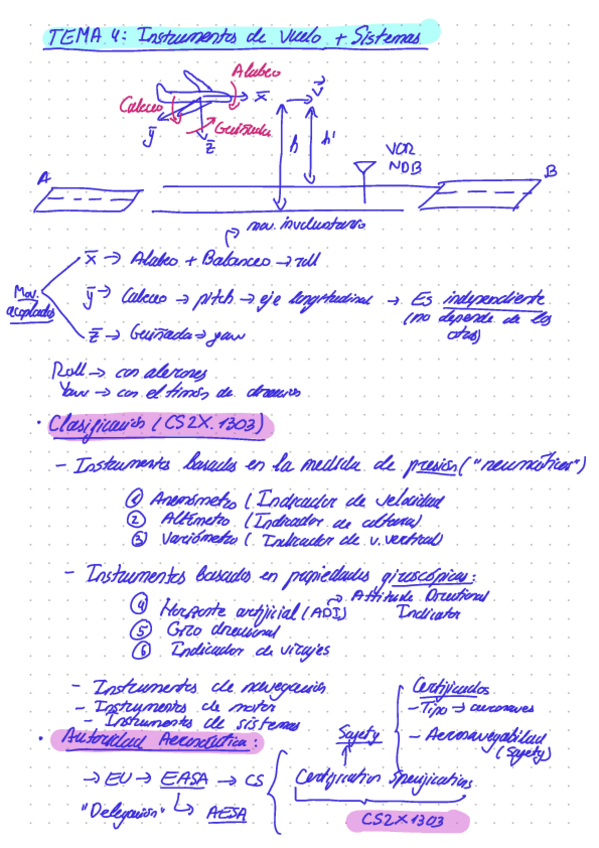 TEMA 4: Instrumentos de vuelo + Sistemas
Alabeo
x̄
v̄
Cabeceo
Guiñada
ȳ
z̄
h
h'
VOR
NDB
A
B
mov. involuntario
x̄ → Alabeo + Balanceo → roll
Mov. acoplados
ȳ → Cabeceo → pitch → eje longitudinal → Es independiente
(no depende de los otros)
z̄ → Guiñada → yaw
Roll → con alerones
Yaw → con el timón de
· Clasificación (CS2X.1303)
- Instrumentos basados en la medida de presión ("neumáticos")
① Anemómetro (Indicador de velocidad
② Altímetro (Indicador de altura)
③ Variómetro (Indicador de v. vertical)
- Instrumentos basados en propiedades giroscópicas:
→ Attitude Directional Indicator
④ Horizonte artificial (ADI)
⑤ Giro direccional
⑥ Indicador de virajes
- Instrumentos de navegación
- Instrumentos de motor
- Instrumentos de sistemas
Certificados
- Tipo → aeronaves
- Aeronavegabilidad
(Safety)
· Autoridad Aeronáutica:
Safety
→ EU → EASA → CS
Certification Specifications
"Delegación" → AESA
CS2X1303